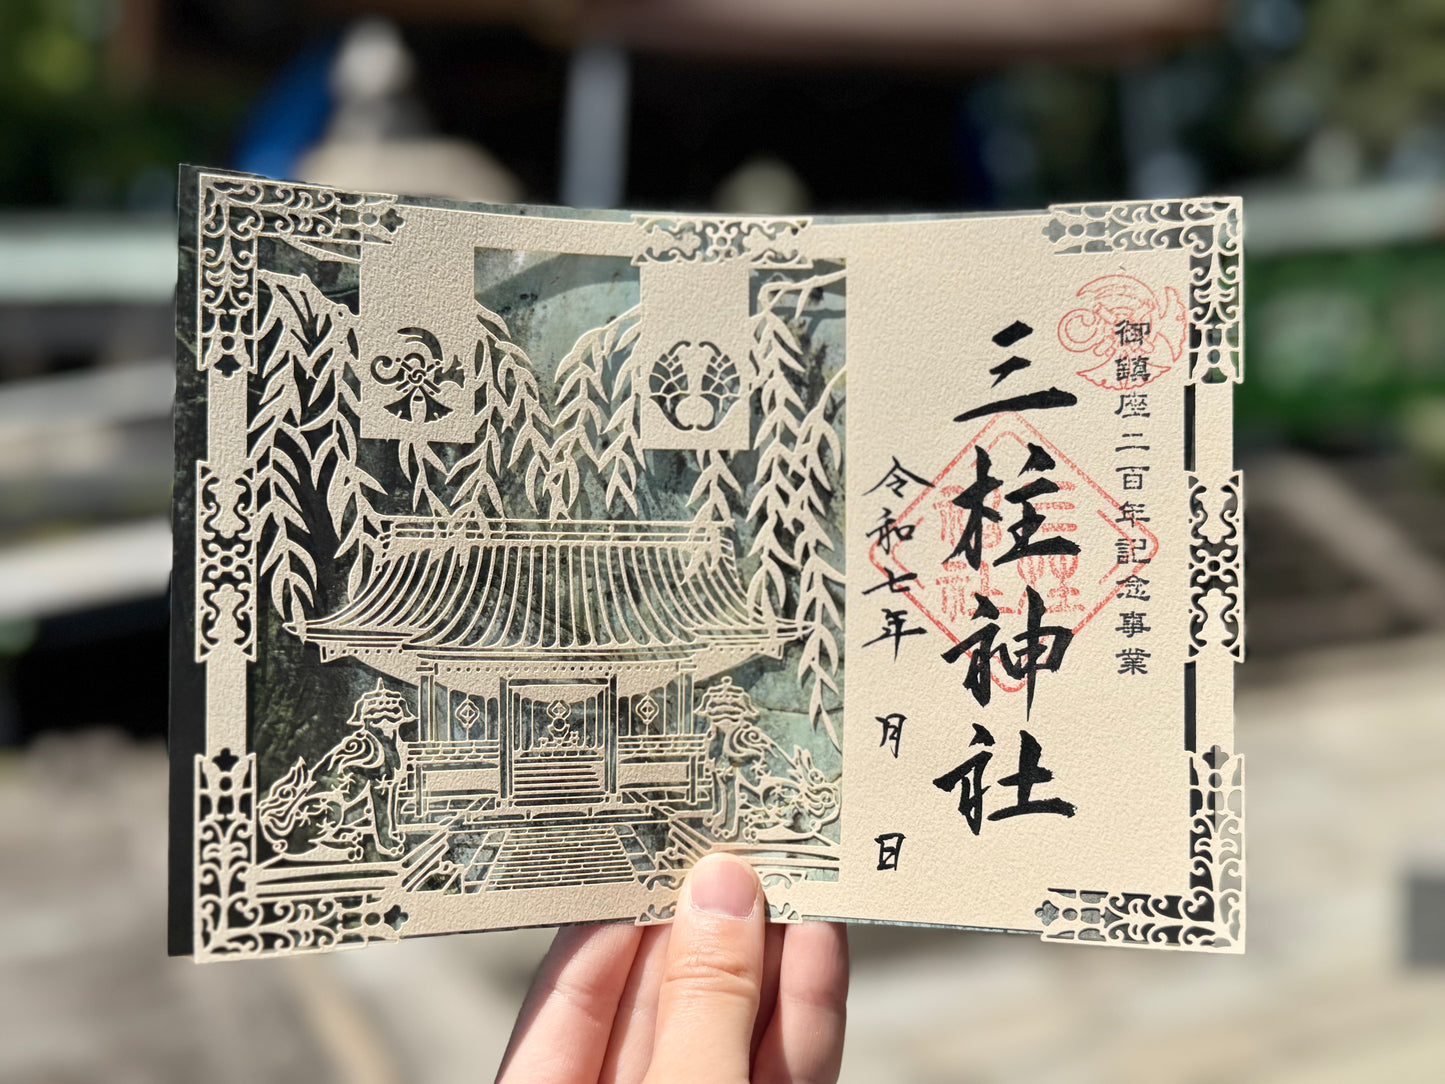 御鎮座二百年記念事業
三柱神社
三柱神社
令和七年 月 日